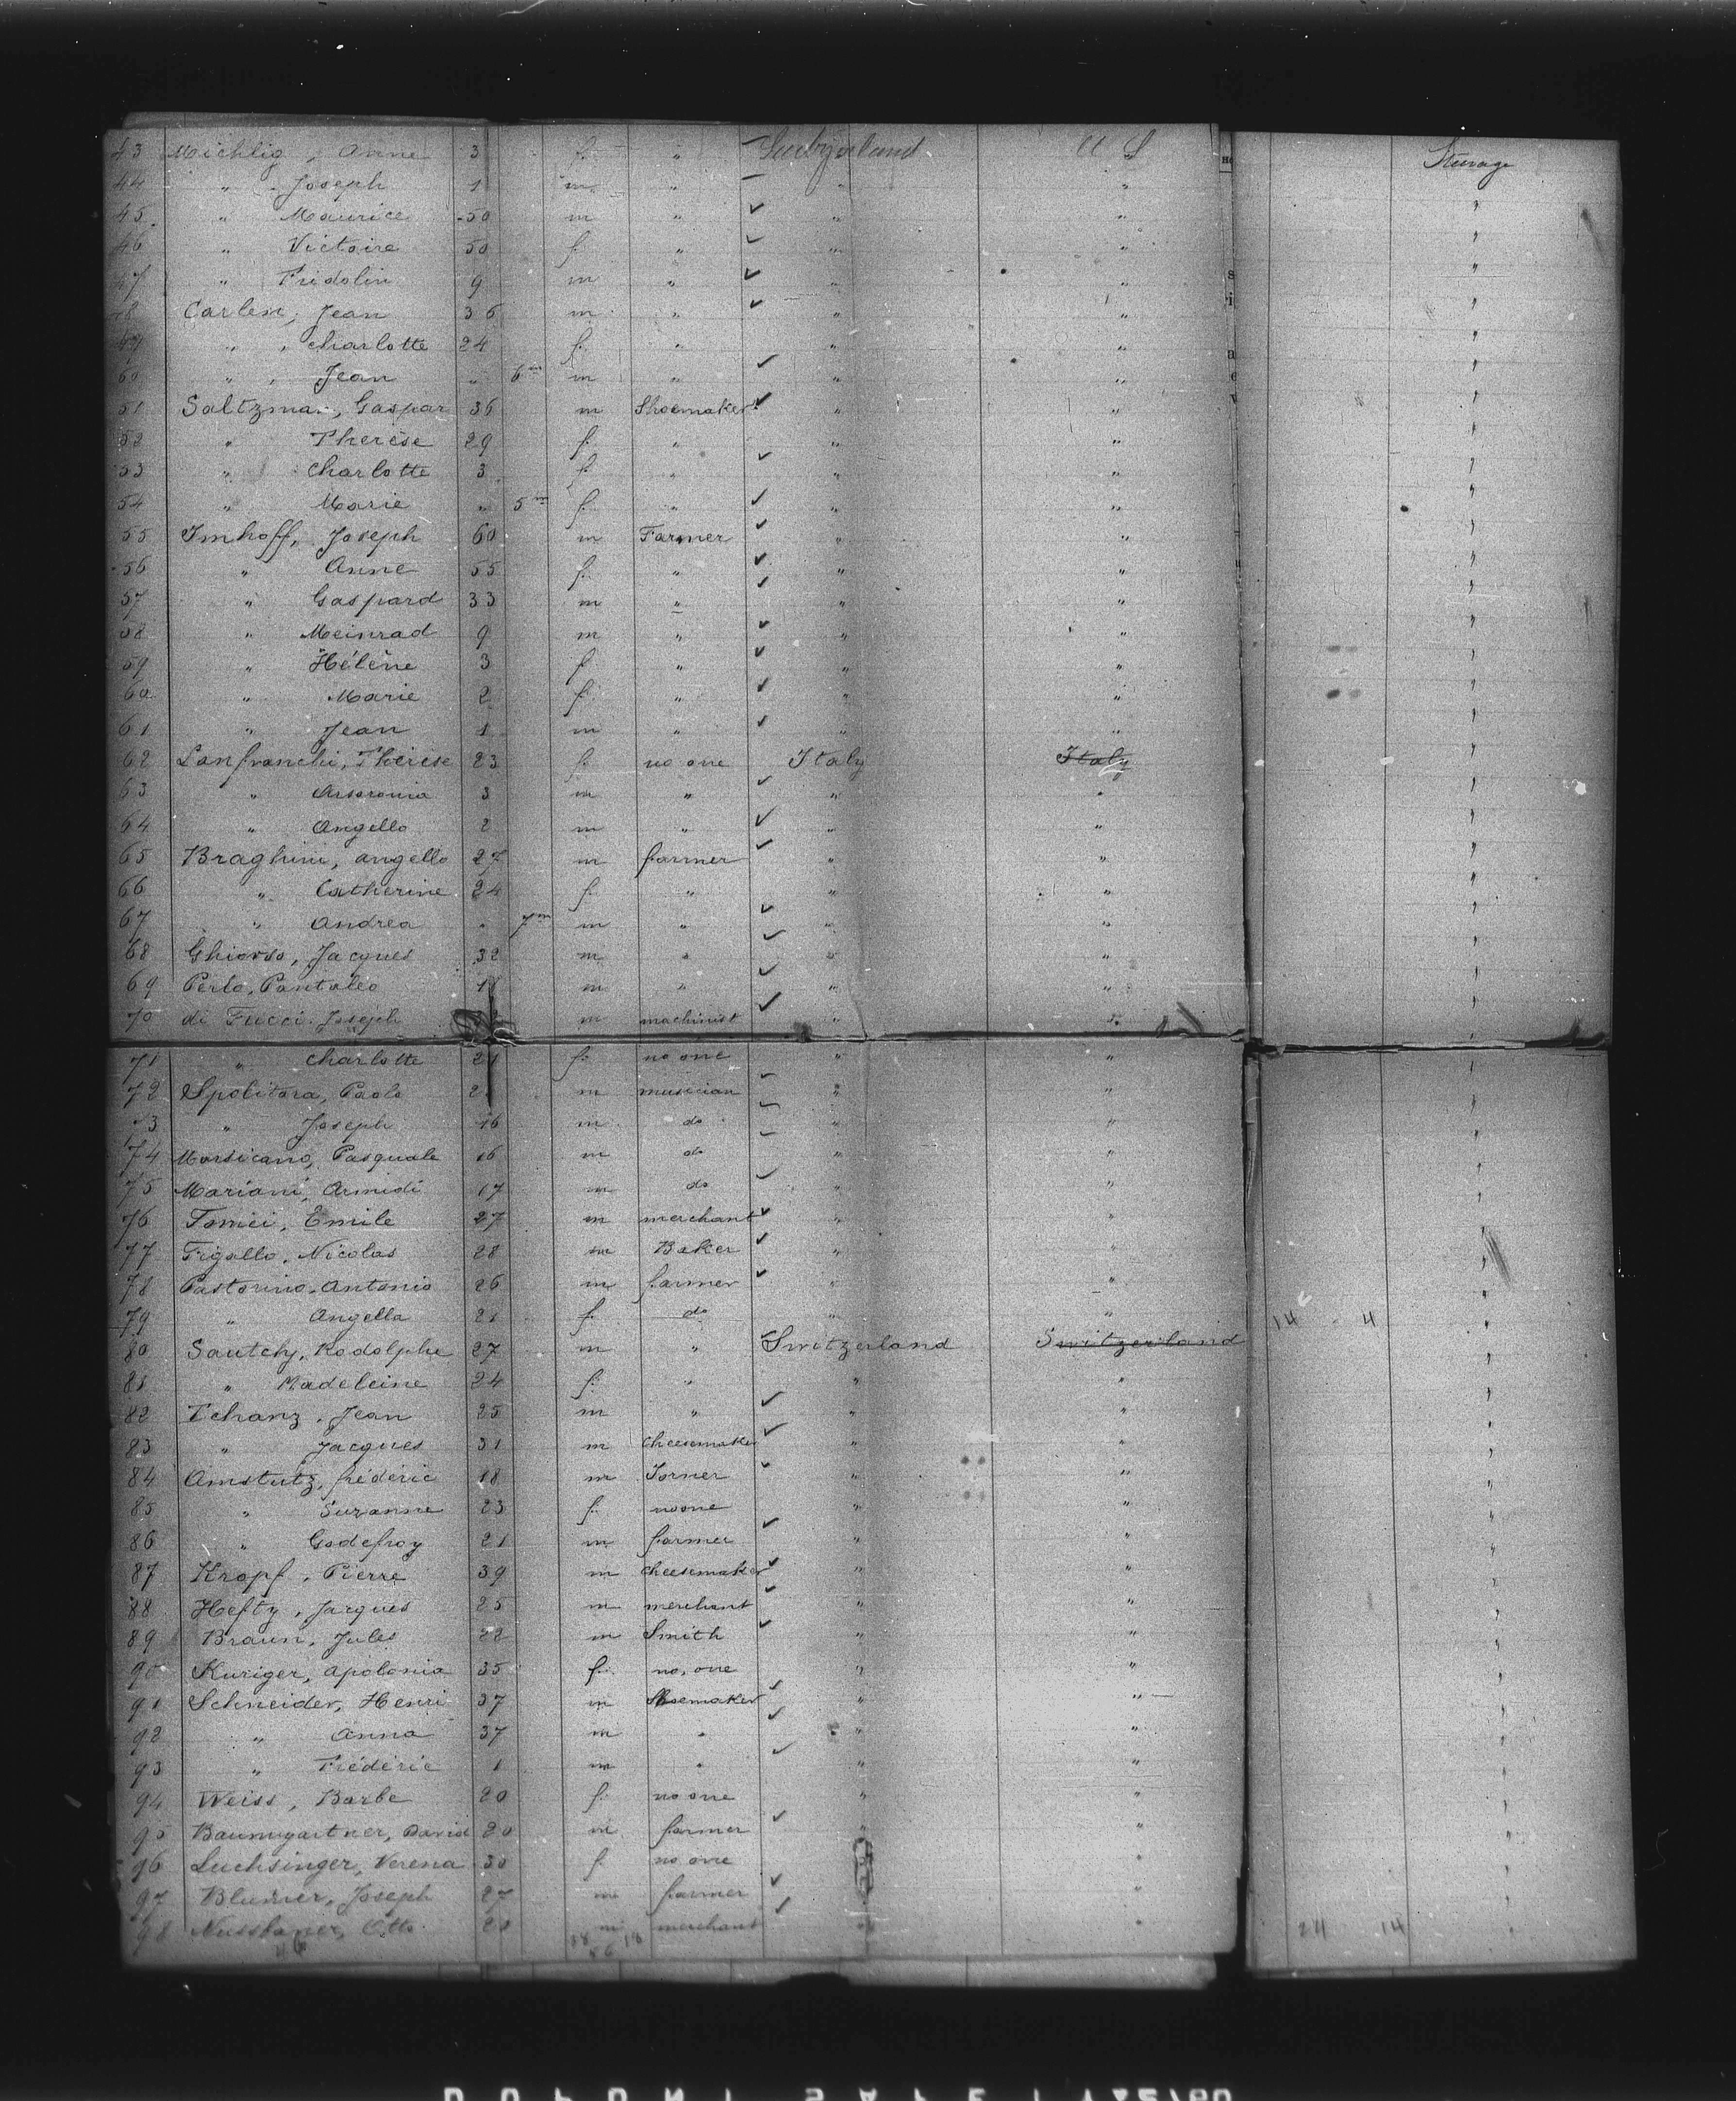 43 Michlig, Anne 3 f. " Switzerland U S Steerage
44 " Joseph 1 m " " " "
45 " Maurice 50 m " " " "
46 " Victoire 50 f. " " " "
47 " Fridolin 9 m " " " "
48 Carlen, Jean 36 m " " " "
49 " charlotte 24 f. " " " "
" Jean " 6 m m " " " "
51 Saltzman, Gaspar 36 m Shoemaker " " "
52 " Therèse 29 f. " " " "
53 " charlotte 3 f " " " "
54 " Marie " 5 m f. " " " "
55 Imhoff, Joseph 60 m Farmer " " "
56 " Anne 55 f. " " " "
57 " Gaspard 33 m " " " "
58 " Meinrad 9 m " " " "
59 " Hélène 3 f " " " "
60 " Marie 2 f. " " " "
61 " Jean 1 m " " " "
62 Lanfranchi, Thérèse 23 f. no one Italy Italy "
63 " 3 m " " " "
64 " Angello 2 m " " " "
65 Braghini, angello 27 m farmer " " "
66 " Catherine 24 f. " " " "
67 " Andrea " 7 m m " " " "
68 Ghiorso, Jacques 32 m " " " "
69 Perlo, Pantaleo m " " " "
70 di Fucci, Joseph m machinist " " "
71 " charlotte 21 f. no one " " "
72 Spolitora, Paolo m musician " " "
73 " Joseph 16 m do " " "
74 Marsicano, Pasquale 16 m do " " "
75 Mariani, Armidi 17 m do " " "
76 Tomei, Emile 27 m merchant " " "
77 Frigallo, Nicolas 28 m Baker " " "
78 Pastorino, Antonio 26 m farmer " " "
79 " Angella 21 f. do " " 14 4 "
80 Sautchy, Rodolphe 27 m " Switzerland Switzerland "
81 " Madeleine 24 f. " " " "
82 Tchanz, Jean 25 m " " " "
83 " Jacques 31 m cheesemaker " " "
84 Amstutz, frédéric 18 m Torner " " "
85 " Suzanne 23 f. no one " " "
86 " Godefroy 21 m farmer " " "
87 Kropf, Pierre 39 m cheesemaker " " "
88 Hefty, Jacques 25 m merchant " " "
89 Braun, Jules 22 m Smith " " "
90 Kuriger, apolonia 35 f. no one " " "
91 Schneider, Henri 37 m Shoemaker " " "
92 " Anna 37 m " " " "
93 " Frédéric 1 m " " " "
94 Weiss, Barbe 20 f. no one " " "
95 Baumgartner, David 20 m farmer " " "
96 Luchsinger, Verena 30 f. no one " " "
97 Blumer, Joseph 27 m farmer " " "
98 Nussbaumer, Otto 20 m merchant " " 24 14 "